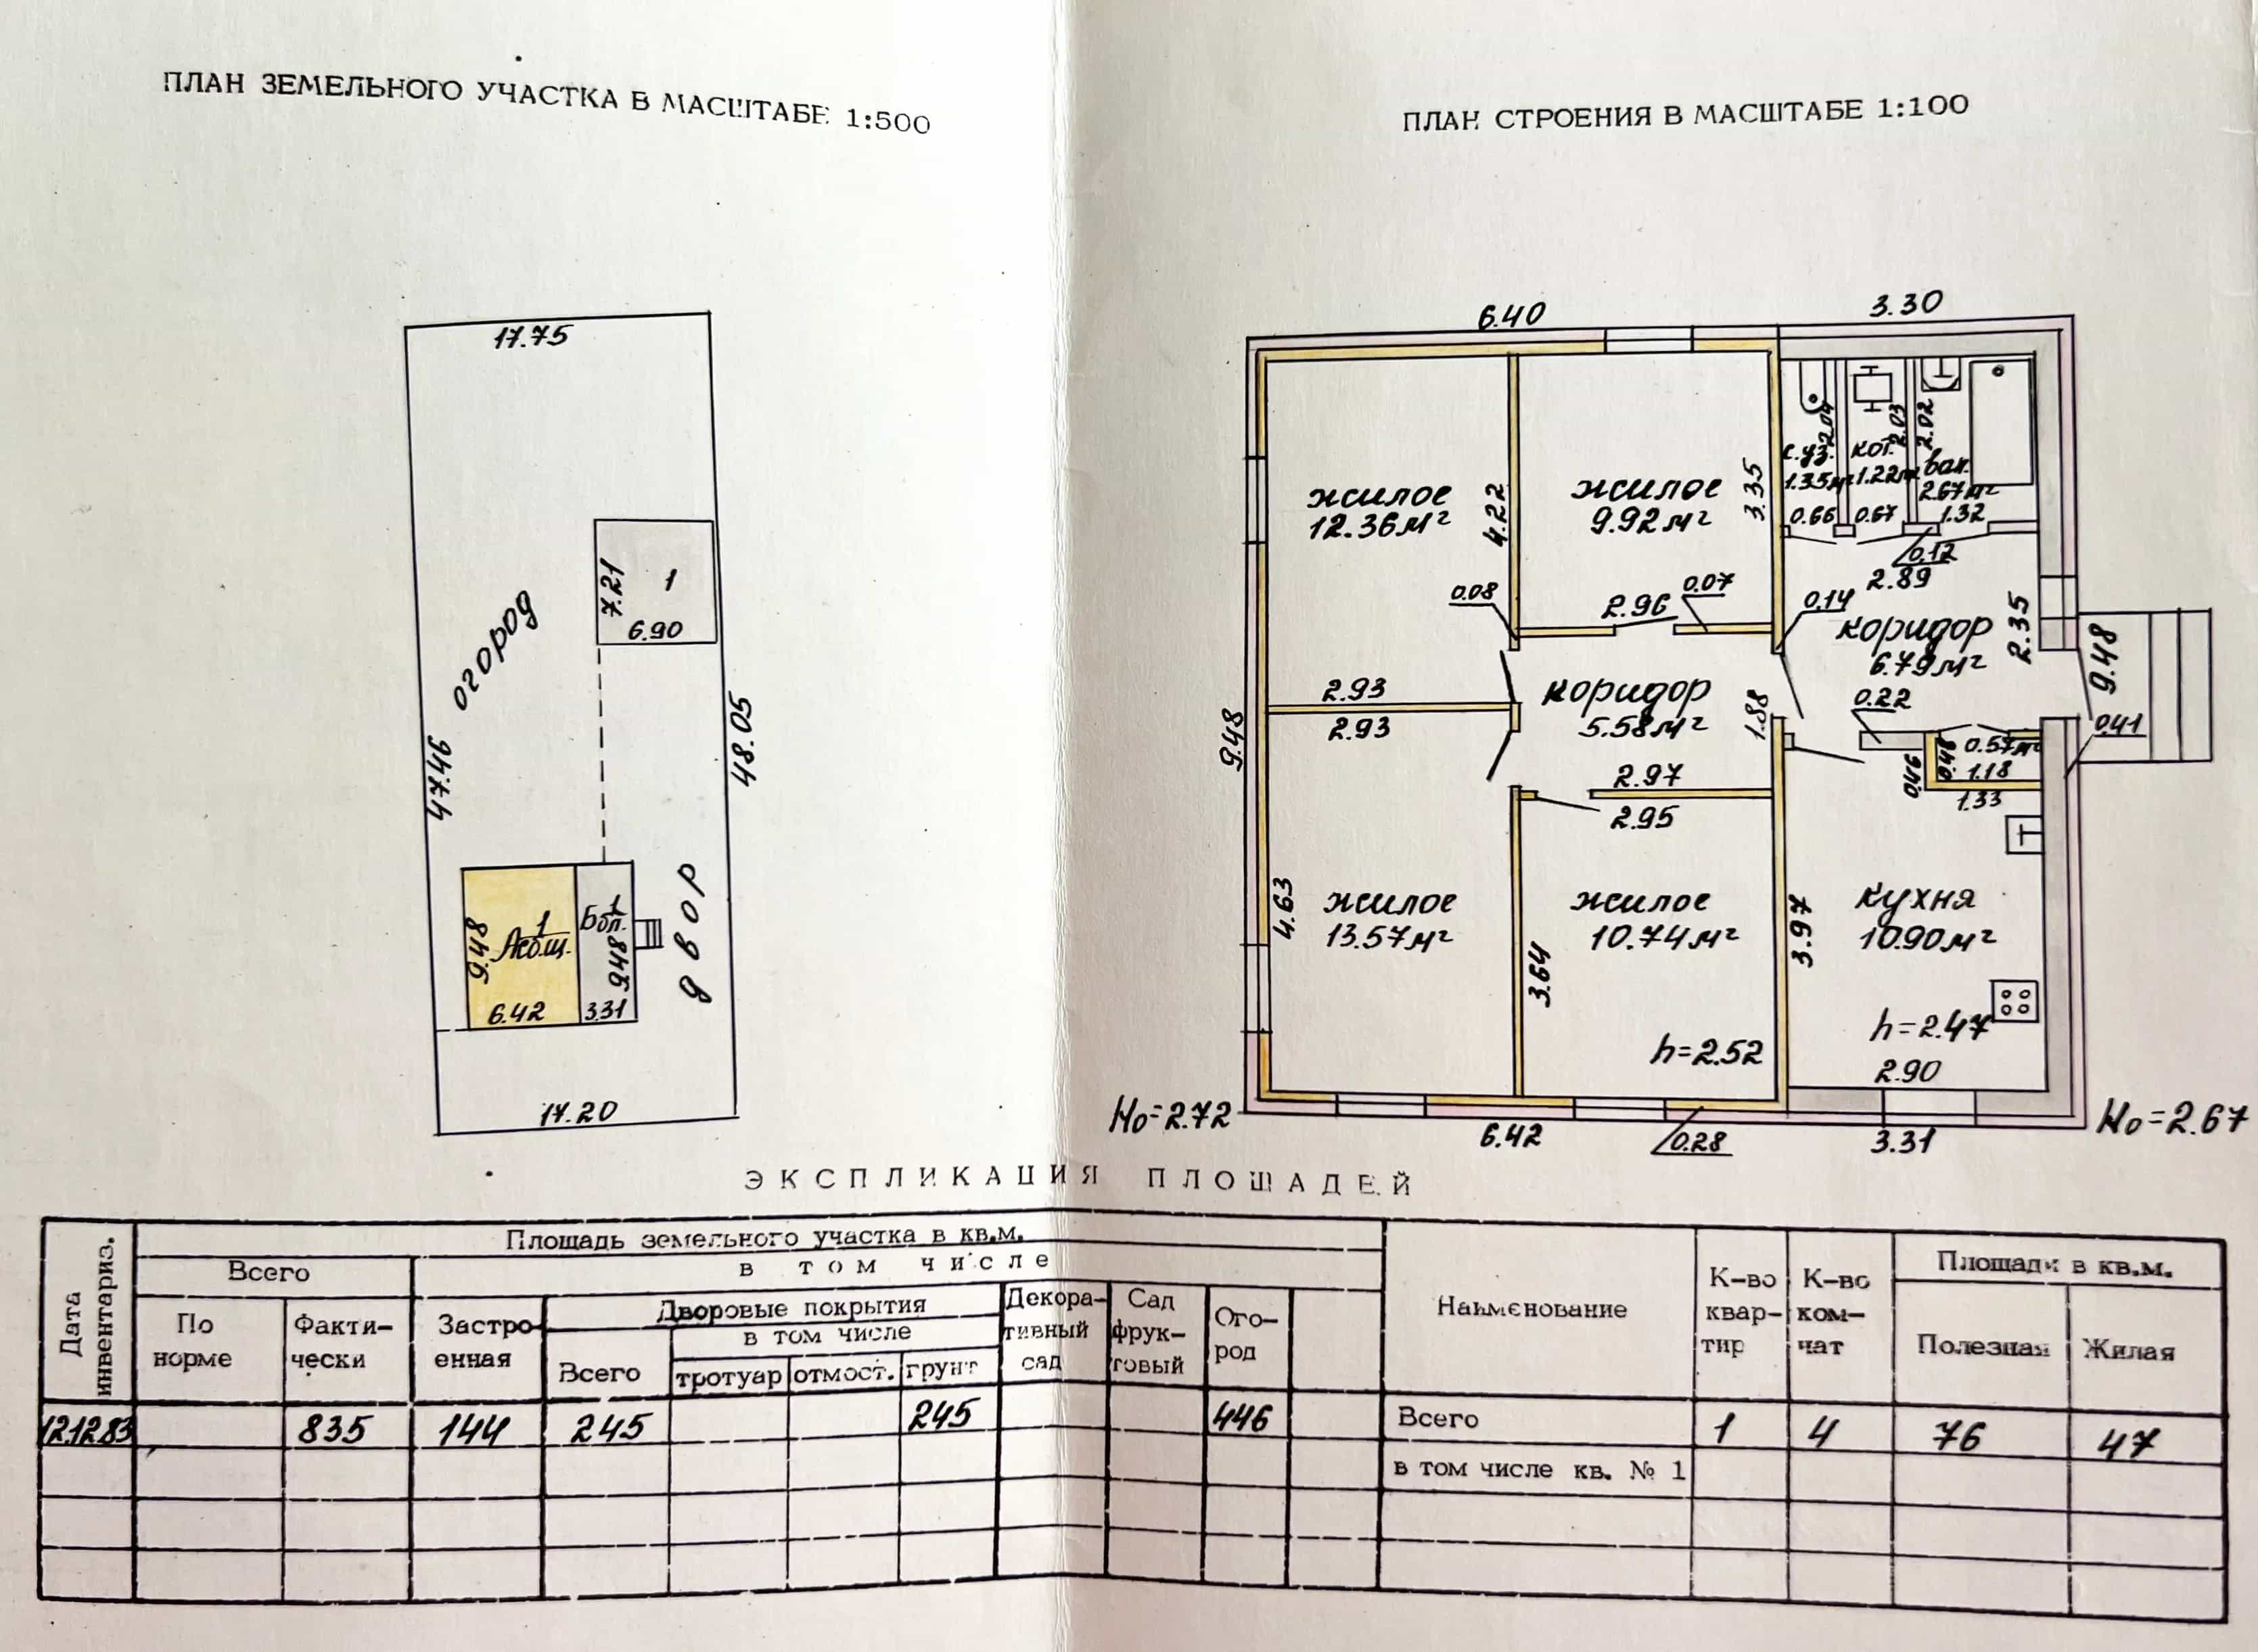 ПЛАН ЗЕМЕЛЬНОГО УЧАСТКА В МАСШТАБЕ 1:500
17.75
7.21
1
6.90
огород
47.46
48.05
9.48
1
6.42
1
9.48
3.31
двор
17.20
ПЛАН СТРОЕНИЯ В МАСШТАБЕ 1:100
6.40
3.30
жилое
12.36м²
4.22
жилое
9.92м²
3.35
2.04
с.уз.
1.35м²
0.66
2.03
кот.
1.22м²
0.67
2.02
ван.
2.67м²
1.32
0.12
2.89
0.08
2.96
0.07
0.14
коридор
6.79м²
2.35
9.48
0.41
2.93
2.93
коридор
5.58м²
1.88
0.22
0.46
0.46
0.57м²
1.18
1.33
9.48
2.97
2.95
4.63
жилое
13.57м²
3.64
жилое
10.74м²
h=2.52
3.97
кухня
10.90м²
h=2.47
2.90
Но=2.72
6.42
0.28
3.31
Но=2.67
ЭКСПЛИКАЦИЯ ПЛОЩАДЕЙ
Дата инвентариз.
Площадь земельного участка в кв.м.
Всего
в том числе
По норме
Факти-чески
Застро-енная
Дворовые покрытия
Всего
в том числе
тротуар
отмост.
грунт
Декора-тивный сад
Сад фрук-товый
Ого-род
Наименование
К-во квар-тир
К-во ком-нат
Площади в кв.м.
Полезная
Жилая
12.12.83
835
144
245
245
446
Всего
1
4
76
47
в том числе кв. № 1